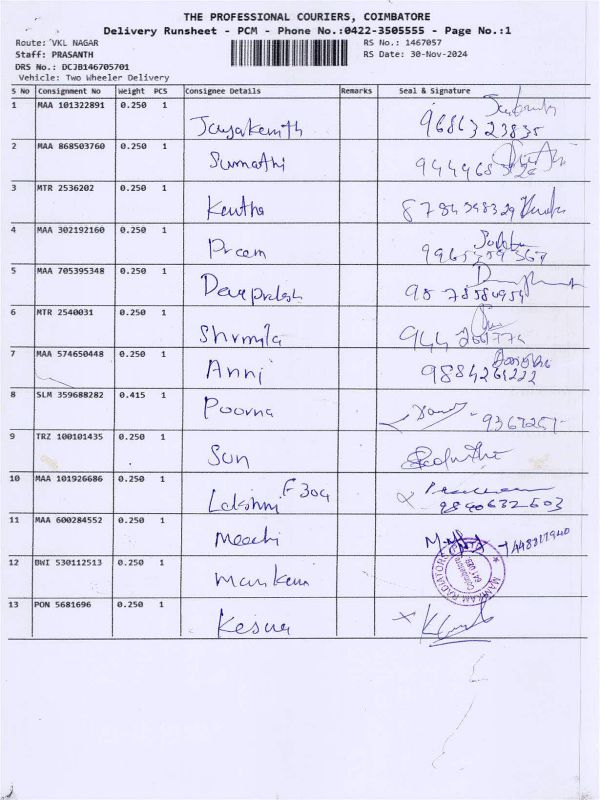 THE PROFESSIONAL COURIERS, COIMBATORE
Delivery Runsheet - PCM - Phone No.:0422-3505555 - Page No.:1
Route: VKL NAGAR RS No.: 1467057
Staff: PRASANTH RS Date: 30-Nov-2024
DRS No.: DCJB146705701
Vehicle: Two Wheeler Delivery
S No Consignment No Weight PCS Consignee Details Remarks Seal & Signature
1 MAA 101322891 0.250 1
Jayakanth
2 MAA 868503760 0.250 1
Sumathi
3 MTR 2536202 0.250 1
Kavtha
4 MAA 302192160 0.250 1
Prem
5 MAA 705395348 0.250 1
Devprakash
6 MTR 2540031 0.250 1
Shrmila
7 MAA 574650448 0.250 1
Anni 9884261222
8 SLM 359688282 0.415 1
Poorna 9367251-
9 TRZ 100101435 0.250 1
Sun
10 MAA 101926686 0.250 1
Lakshmi F304 9840632503
11 MAA 600284552 0.250 1
Meachi
12 BWI 530112513 0.250 1
Mankam
MANKAM RADIATORS
Coimbatore
641 028
13 PON 5681696 0.250 1
Kesva